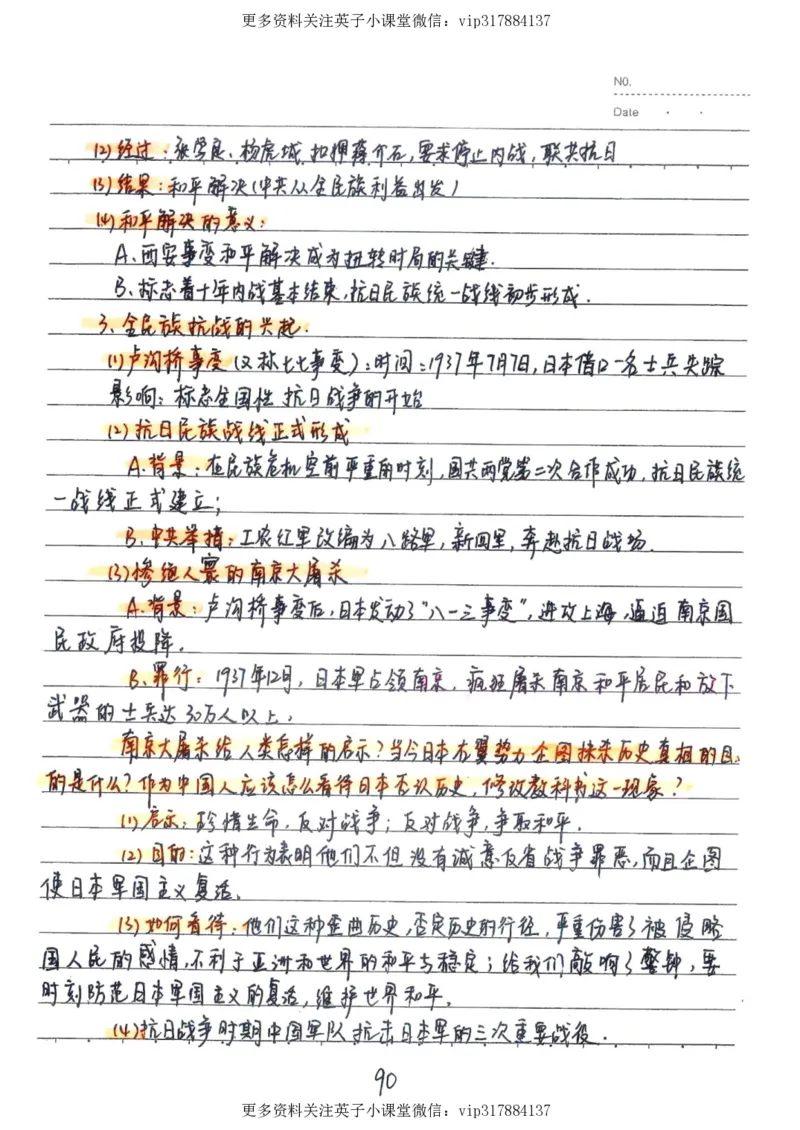 更多资料关注英子小课堂微信：vip317884137
NO.
Date
(2)经过：张学良、杨虎城，扣押蒋介石，要求停止内战，联共抗日
(3)结果：和平解决(中共从全民族利益出发)
(4)和平解决的意义：
A、西安事变和平解决成为扭转时局的关键.
B、标志着十年内战基本结束，抗日民族统一战线初步形成.
3、全民族抗战的兴起.
(1)卢沟桥事变(又称七七事变)：时间：1937年7月7日，日本借口一名士兵失踪
影响：标志全国性抗日战争的开始
(2)抗日民族战线正式形成
A.背景：在民族危机空前严重的时刻，国共两党第二次合作成功，抗日民族统
一战线正式建立；
B、中共举措：工农红军改编为八路军，新四军，奔赴抗日战场.
(3)惨绝人寰的南京大屠杀
A.背景：卢沟桥事变后，日本发动了“八一三事变”，进攻上海，逼迫南京国
民政府投降.
B、罪行：1937年12月，日本军占领南京，疯狂屠杀南京和平居民和放下
武器的士兵达30万人以上，
南京大屠杀给人类怎样的启示？当今日本右翼势力企图抹杀历史真相的目
的是什么？作为中国人应该怎么看待日本否认历史，修改教科书这一现象？
(1)启示：珍惜生命，反对战争；反对战争，争取和平.
(2)目的：这种行为表明他们不但没有诚意反省战争罪恶，而且企图
使日本军国主义复活.
(3)如何看待：他们这种歪曲历史，否定历史的行径，严重伤害了被侵略
国人民的感情，不利于亚洲和世界的和平与稳定；给我们敲响了警钟，要
时刻防范日本军国主义的复活，维护世界和平.
(4)抗日战争时期中国军队抗击日本军的三次重要战役.
90
更多资料关注英子小课堂微信：vip317884137